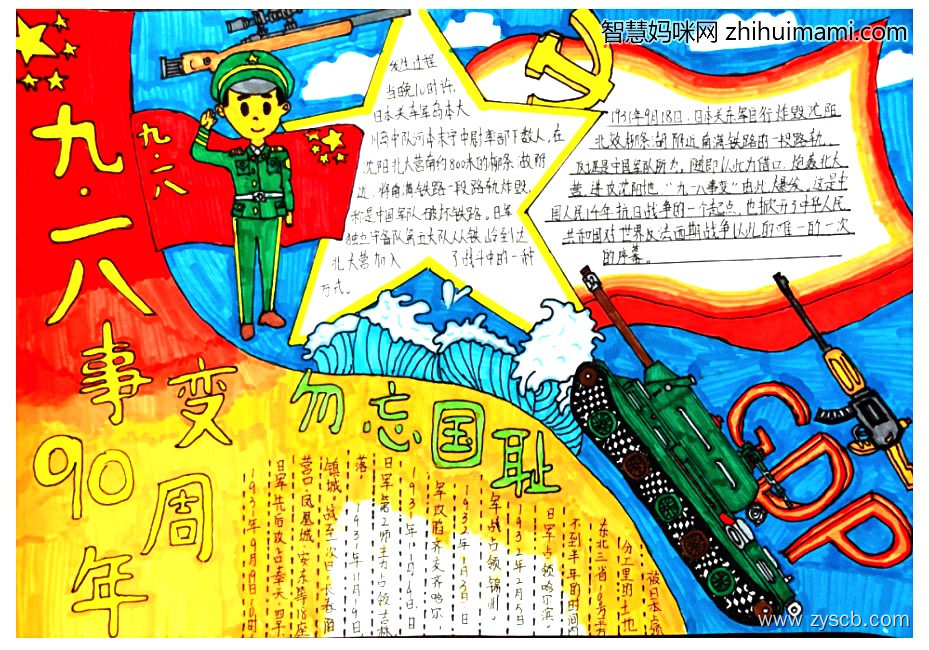 智慧妈咪网 zhihuimami.com
九·一八
事变
90周年
九·一八
勿忘国耻
GDP
发生过程
当晚10时许,
日本关东军岛本大
川岛中队河本末守中尉率部下数人,在
沈阳北大营南约800米的柳条
近,将南满铁路一段路轨炸毁,
称是中国军队破坏铁路。日军
独立守备队第五大队从铁岭到达
北大营加入 了战斗中的一种
方式。
1931年9月18日,日本关东军自行炸毁沈阳
北效柳条湖附近南满铁路的一段路轨,
反诬是中国军队所为,随即以此为借口,炮轰北大
营,进攻沈阳地。“九一八事变”由此爆发。这是中
国人民14年抗日战争的一个起点,也掀开了中华人民
共和国对世界反法西斯战争以此的唯一的一次
的序幕。
被日本占
分工里的土地
东北三省
不到半年的时间内
日军占领哈尔滨,
1932年2月5日
军战占领锦州。
1932年1月2日
军攻陷齐齐哈尔,
1931年11月4日,日
日军第2师主力占领吉林
落,1931年11月19日,
镇城。战至一次日,长春陷
营口,凤凰城,安东等18座
日军先后攻占奉天,四平
1931年9月19日10时
www.zyscb.com